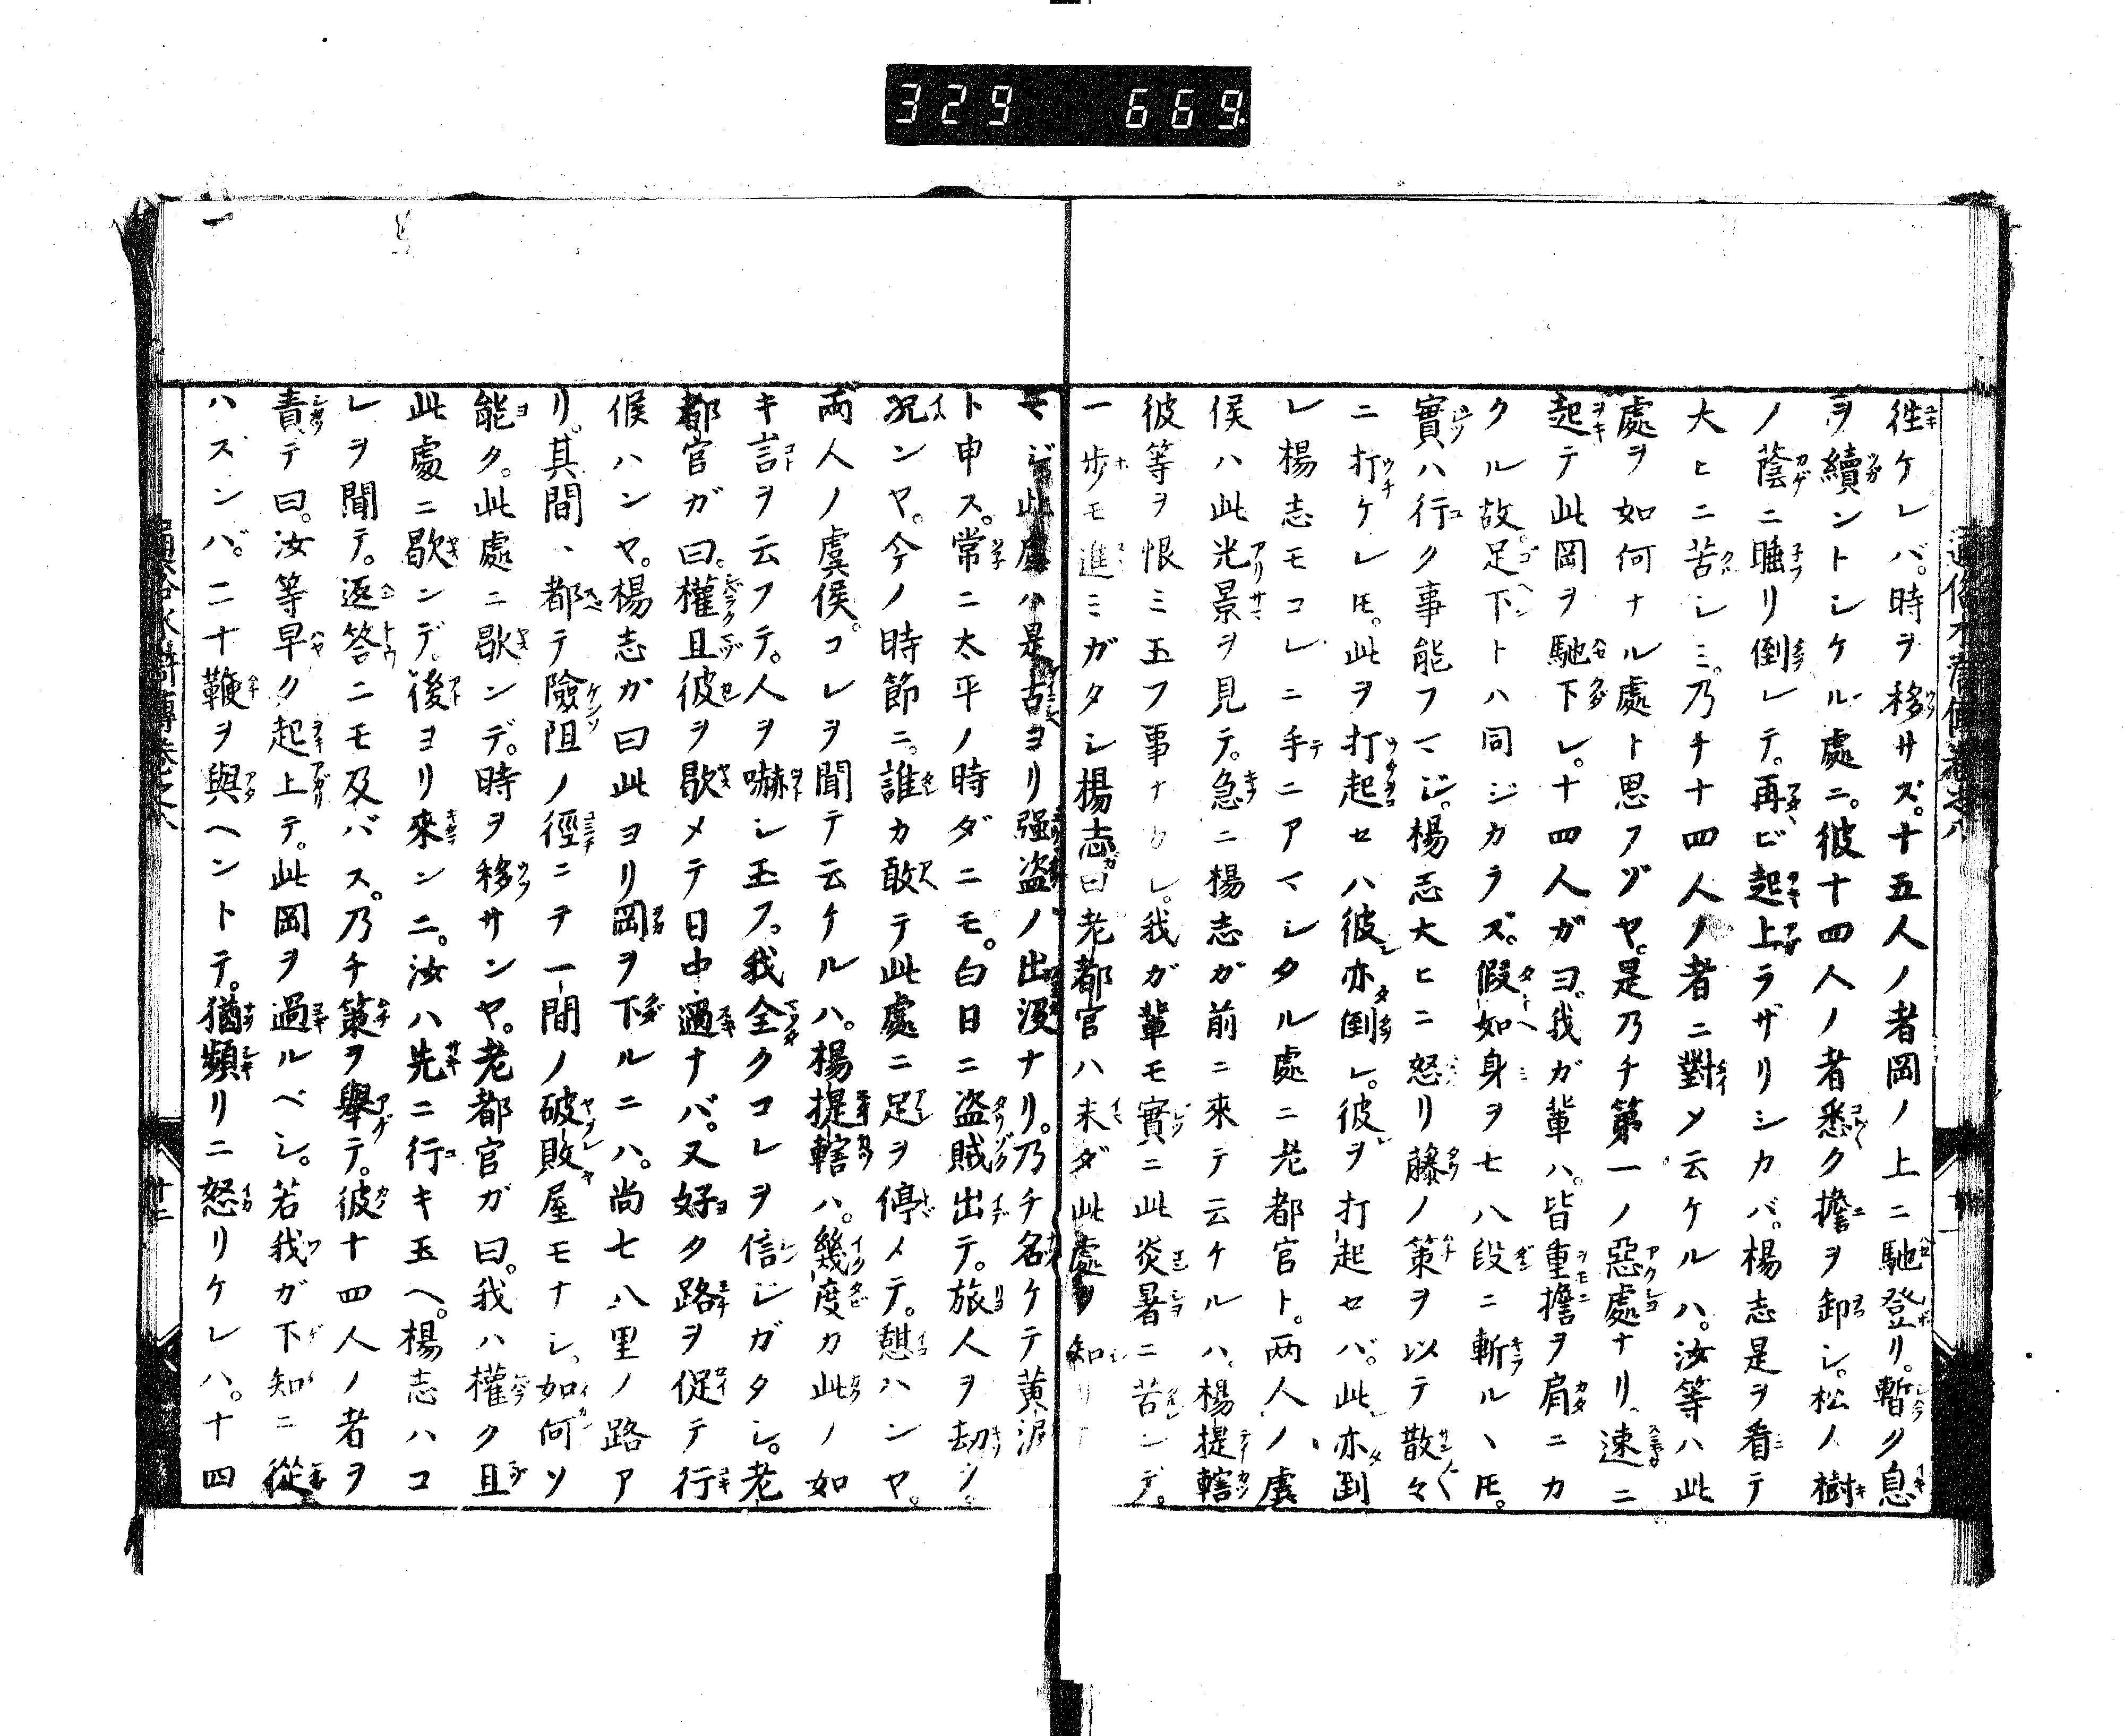 329 669
徃ケレバ。時ヲ移サズ。十五人ノ者岡ノ上ニ馳登リ。暫ク息
ヲ續ントシケル處ニ。彼十四人ノ者悉ク擔ヲ卸シ。松ノ樹
ノ蔭ニ睡リ倒レテ。再ビ起上ラザリシカバ。楊志是ヲ看テ
大ヒニ苦シミ。乃チ十四人ノ者ニ對メ云ケルハ。汝等ハ此
處ヲ如何ナル處ト思フゾヤ。是乃チ第一ノ惡處ナリ。速ニ
起テ此岡ヲ馳下レ。十四人ガヨ。我ガ輩ハ。皆重擔ヲ肩ニカ
クル故。足下トハ同ジカラズ。假如身ヲ七八段ニ斬ルヽ𪜈。
實ハ行ク事能フマジ。楊志大ヒニ怒リ藤ノ策ヲ以テ散々
ニ打ケレ𪜈。此ヲ打起セハ彼亦倒レ。彼ヲ打起セバ。此亦倒
レ楊志モコレニ手ニアマシタル處ニ老都官ト。两人ノ虞
侯ハ此光景ヲ見テ。急ニ楊志ガ前ニ來テ云ケルハ。楊提轄
彼等ヲ恨ミ玉フ事ナカレ。我ガ輩モ實ニ此炎暑ニ苦ンデ。
一歩モ進ミガタシ楊志曰老都官ハ未ダ此處ヲ知リ
マジ此處ハ是古ヨリ強盗ノ出沒ナリ。乃チ名ケテ黄泥
ト申ス。常ニ太平ノ時ダニモ。白日ニ盗賊出テ。旅人ヲ劫ソ。
况ンヤ。今ノ時節ニ。誰カ敢テ此處ニ足ヲ停メテ。憇ハンヤ。
两人ノ虞侯。コレヲ聞テ云ケルハ。楊提轄ハ。幾度カ此ノ如
キ言ヲ云フテ。人ヲ嚇シ玉フ。我全クコレヲ信ジガタシ。老
都官ガ曰。權且彼ヲ歇メテ日中過ナバ。又好ク路ヲ促テ行
候ハンヤ。楊志ガ曰此ヨリ岡ヲ下ルニハ。尚七八里ノ路ア
リ。其間ヽ都テ險阻ノ徑ニテ一間ノ破敗屋モナシ。如何ソ
能ク。此處ニ歇ンデ。時ヲ移サンヤ。老都官ガ曰。我ハ權ク且
此處ニ歇ンデ。後ヨリ來ンニ。汝ハ先ニ行キ玉ヘ。楊志ハコ
レヲ聞テ。返答ニモ及バス。乃チ策ヲ舉テ。彼十四人ノ者ヲ
責テ曰。汝等早ク起上テ。此岡ヲ過ルベシ。若我ガ下知ニ從
ハスンバ。二十鞭ヲ與ヘントテ。猶頻リニ怒リケレハ。十四